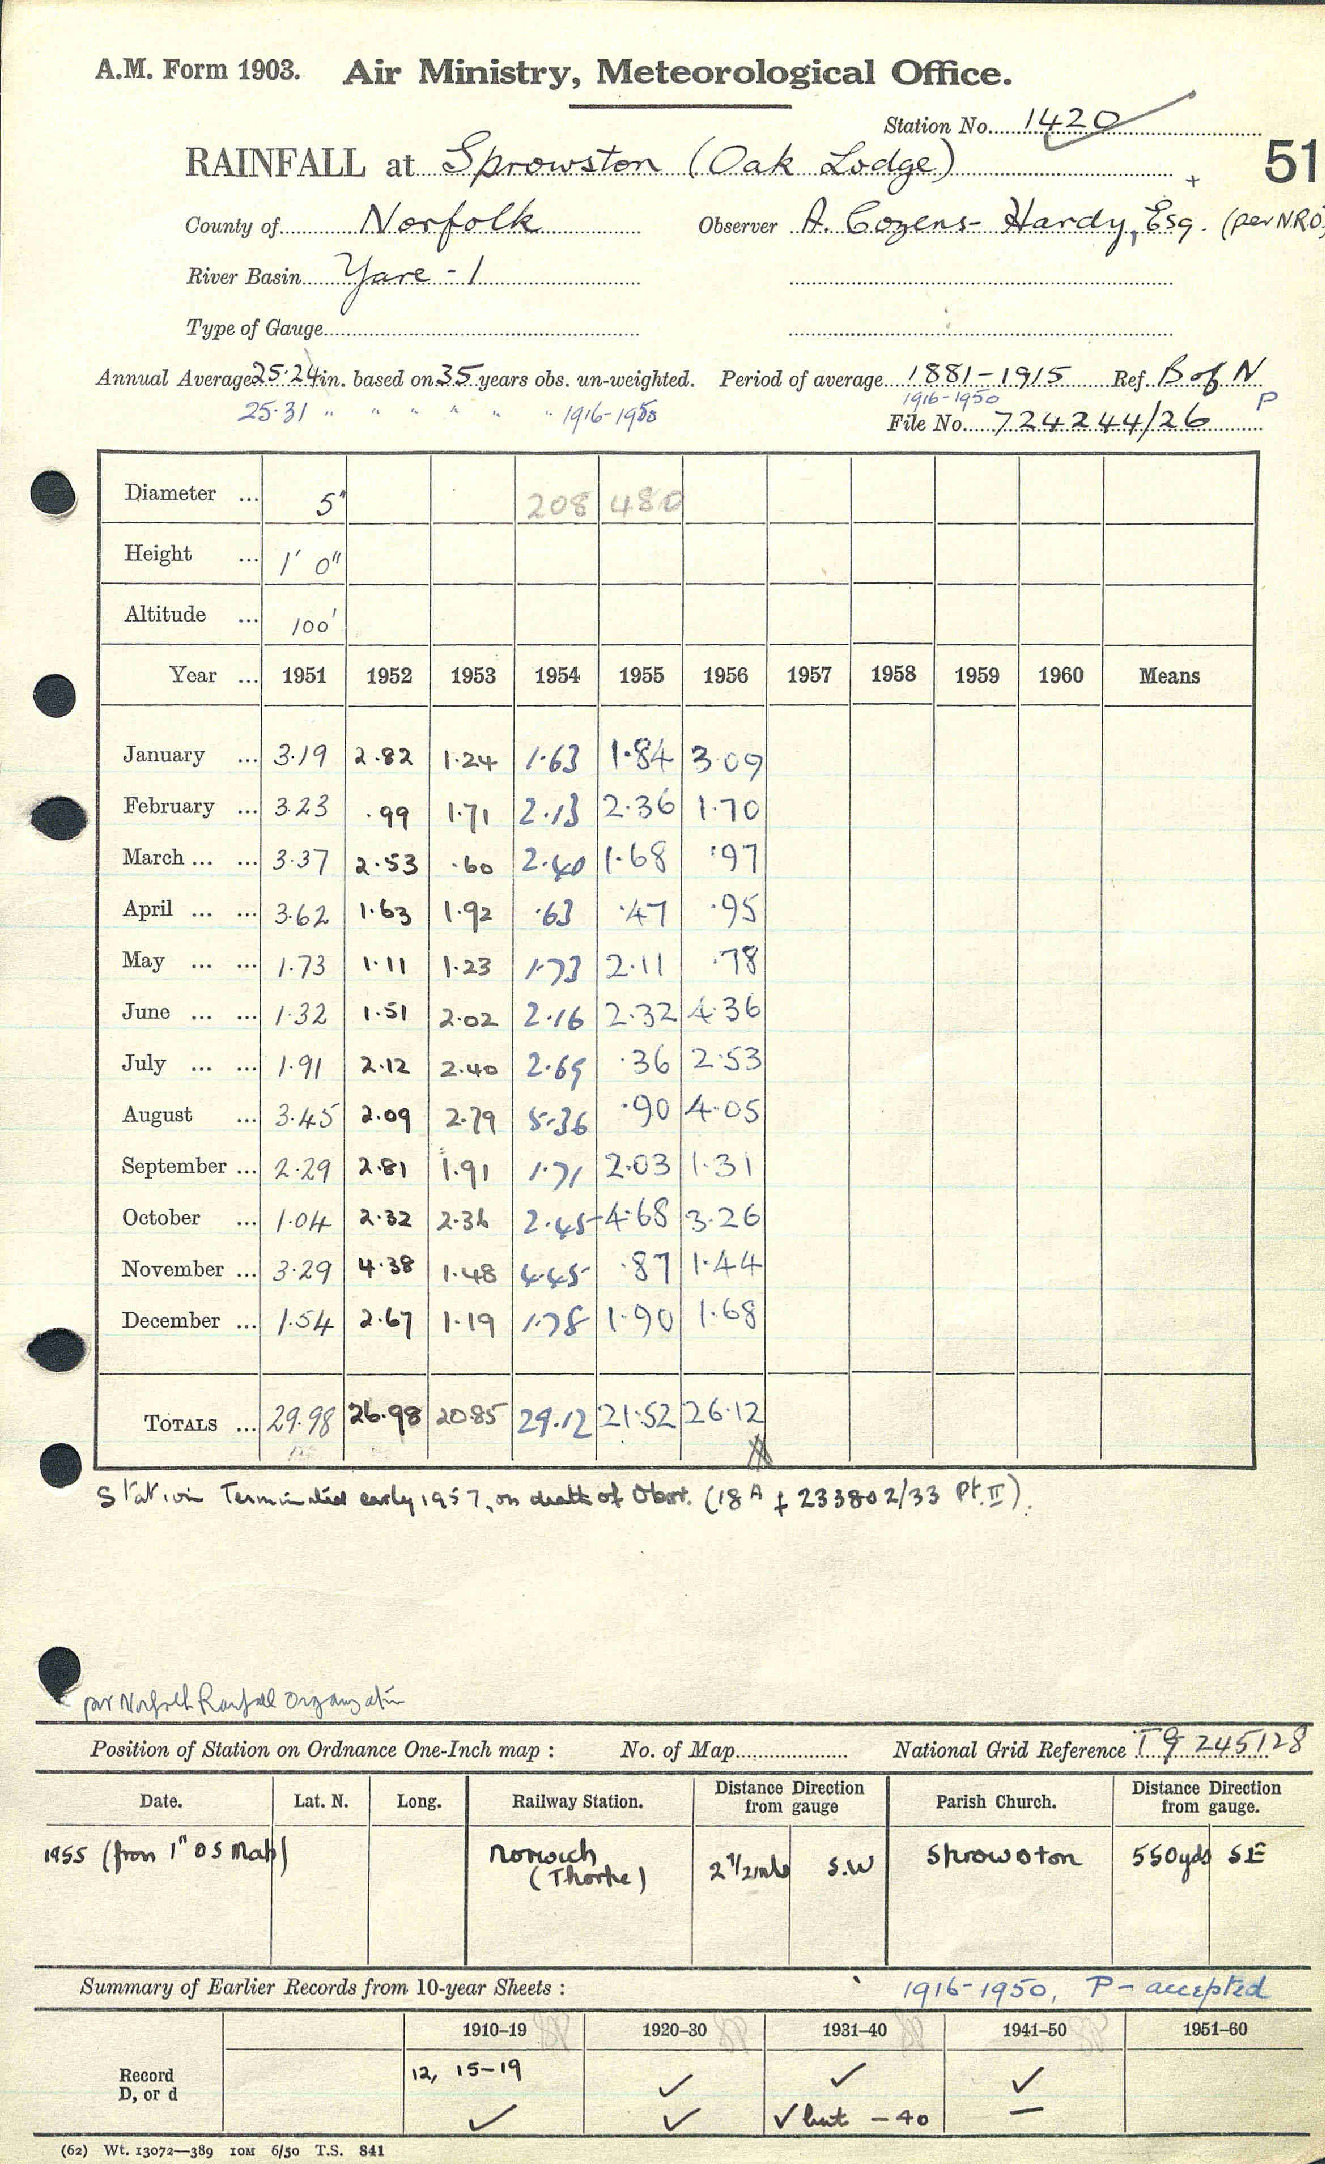 A.M. Form 1903. Air Ministry, Meteorological Office.
Station No. 1420
RAINFALL at Sprowston (Oak Lodge) + 51
County of Norfolk Observer A. Cozens-Hardy, Esq. (per N.R.O.)
River Basin Yare - 1
Type of Gauge
Annual Average 25.24 in. based on 35 years obs. un-weighted. Period of average 1881-1915 Ref. B of N
25.31 " " " " " " 1916-1950 1916-1950 P
File No. 724244/26
Diameter ... 5" 208 480
Height ... 1' 0"
Altitude ... 100'
Year ... 1951 1952 1953 1954 1955 1956 1957 1958 1959 1960 Means
January ... 3.19 2.82 1.24 1.63 1.84 3.09
February ... 3.23 .99 1.71 2.13 2.36 1.70
March ... ... 3.37 2.53 .60 2.40 1.68 .97
April ... ... 3.62 1.63 1.92 .63 .47 .95
May ... ... 1.73 1.11 1.23 1.73 2.11 .78
June ... ... 1.32 1.51 2.02 2.16 2.32 4.36
July ... ... 1.91 2.12 2.40 2.69 .36 2.53
August ... 3.45 2.09 2.79 5.36 .90 4.05
September ... 2.29 2.81 1.91 1.71 2.03 1.31
October ... 1.04 2.32 2.36 2.45 4.68 3.26
November ... 3.29 4.38 1.48 4.45 .87 1.44
December ... 1.54 2.67 1.19 1.78 1.90 1.68
TOTALS ... 29.98 26.98 20.85 29.12 21.52 26.12
Station Terminated early 1957, on death of Obsr. (18A f 233802/33 Pt. II).
per Norfolk Rainfall Organization
Position of Station on Ordnance One-Inch map : No. of Map National Grid Reference TG 245128
Date. Lat. N. Long. Railway Station. Distance Direction from gauge Parish Church. Distance Direction from gauge.
1955 (from 1" OS Map) Norwich (Thorpe) 2 1/2 mls S.W Sprowston 550yds SE
Summary of Earlier Records from 10-year Sheets : 1916-1950, P - accepted
1910-19 1920-30 1931-40 1941-50 1951-60
Record D, or d
12, 15-19 ✓ ✓ ✓
✓ ✓ ✓ but -40 —
(62) Wt. 13072—389 10M 6/50 T.S. 841